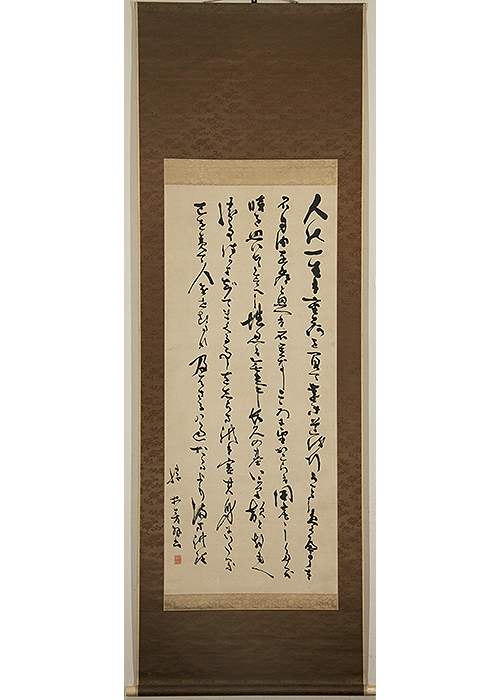 人の一生は重荷を負て遠き道を行がごとし急べからず
不自由を常と思へば不足なしこころに望おこらば困窮したる
時を思ひ出すべし堪忍は無事長久の基いかりは敵と思へ
勝事ばかり知てまくる事を知らざれば害其身にいたる
己を責て人をせむるな及ばざるは過たるよりまされり